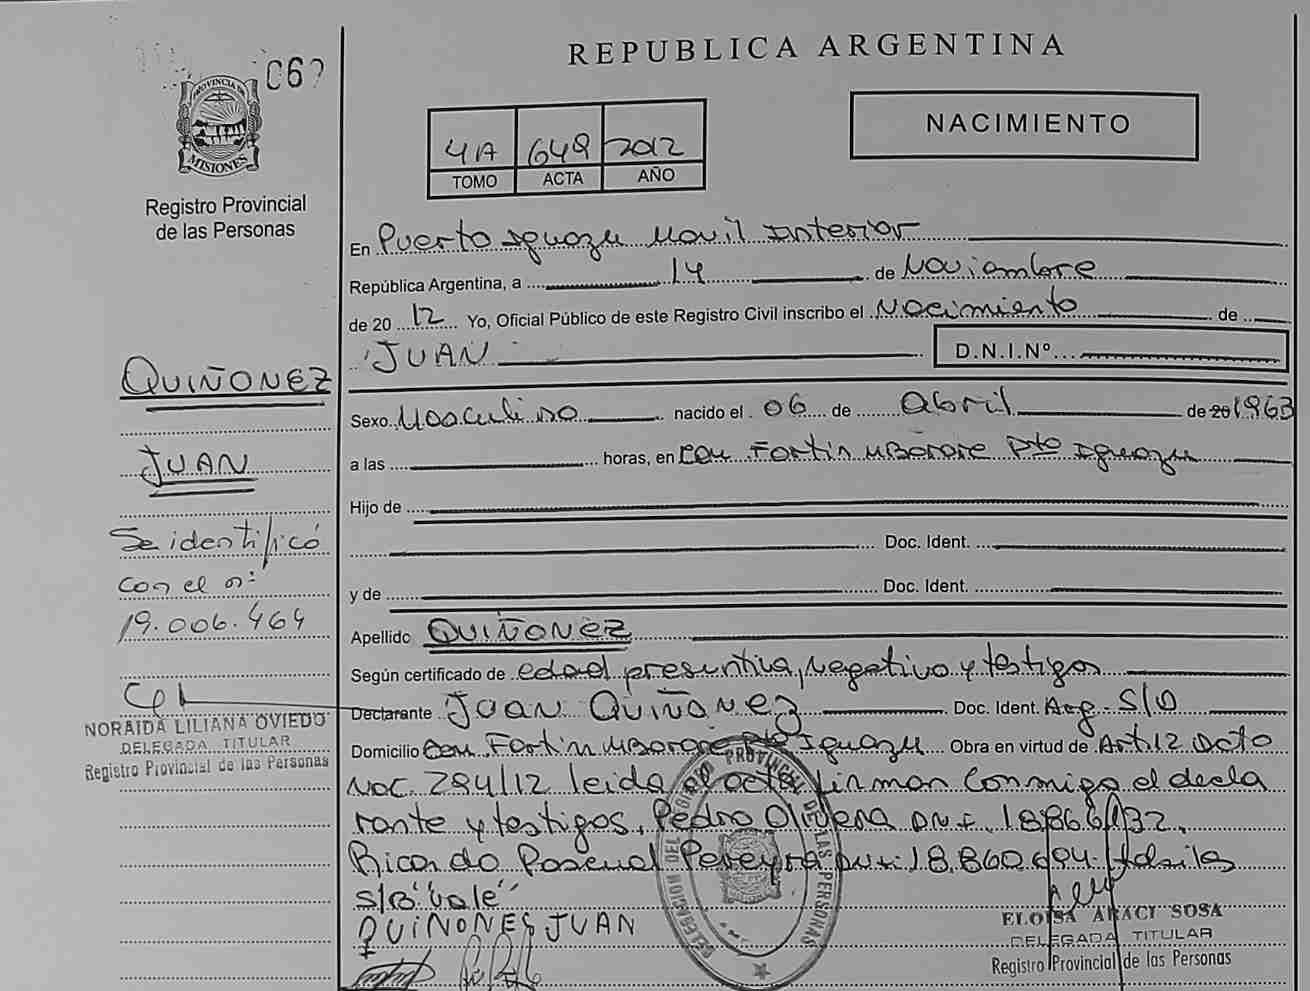 REPUBLICA ARGENTINA
PROVINCIA DE
MISIONES
Registro Provincial
de las Personas
4A 649 2012
TOMO ACTA AÑO
NACIMIENTO
En Puerto Iguazu Movil Interior
República Argentina, a 14 de Noviembre
de 20 12 Yo, Oficial Público de este Registro Civil inscribo el Nacimiento de
JUAN D.N.I.Nº
Sexo Masculino nacido el 06 de Abril de 20 1963
a las horas, en Com Fortin MBorore Pto Iguazu
Hijo de
Doc. Ident.
y de Doc. Ident.
Apellido QUIÑONEZ
Según certificado de edad presuntiva, Negativo y testigos
Declarante Juan Quiñonez Doc. Ident. Arg. S/D
Domicilio Com Fortin MBorore Pto Iguazu Obra en virtud de Art. 12 Dcto
Nac. 294/12 leida el acta firman conmigo el decla
rante y testigos, Pedro Olivera DNI. 18.866.132.
Ricardo Pascual Pereyra DNI. 18.860.694.
S/B "Vale"
QUIÑONES JUAN
QUIÑONEZ
JUAN
Se identificó
con el nº:
19.006.464
NORAIDA LILIANA OVIEDO
DELEGADA TITULAR
Registro Provincial de las Personas
DELEGACION DEL REGISTRO PROVINCIAL DE LAS PERSONAS
ELOISA ARACI SOSA
DELEGADA TITULAR
Registro Provincial de las Personas